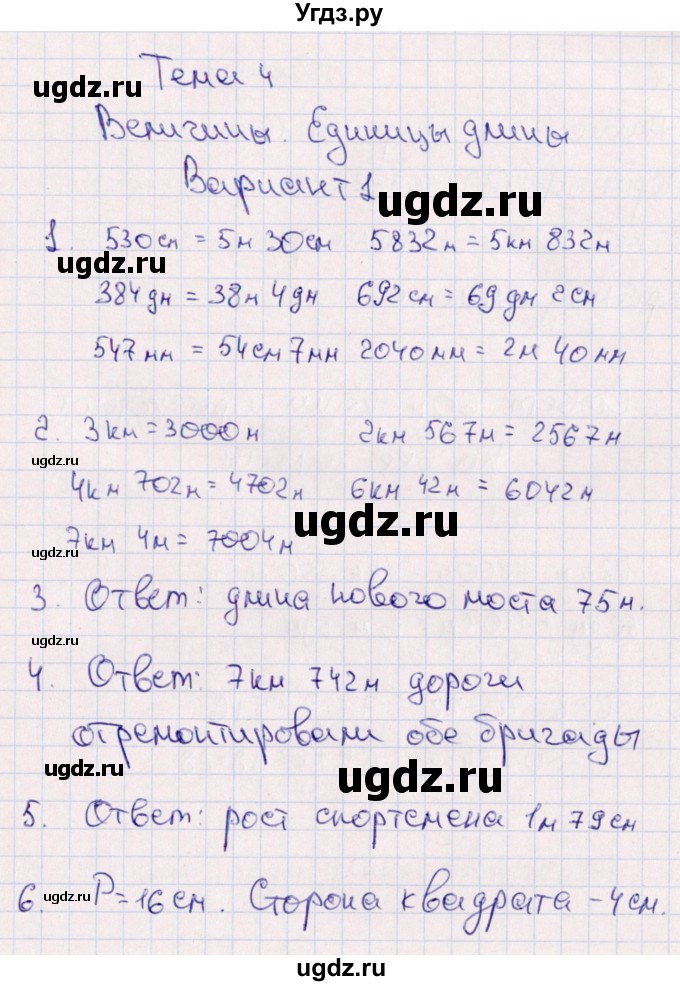 Угдз.ру
Тема 4
ugdz.ru
Величины. Единицы длины
Вариант 1
ugdz.ru
1. 530см = 5м 30см 5832м = 5км 832м
ugdz.ru
384дм = 38м 4дм 692см = 69дм 2см
547мм = 54см 7мм 2040мм = 2м 40мм
2. 3км = 3000м 2км 567м = 2567м
ugdz.ru
4км 702м = 4702м 6км 42м = 6042м
ugdz.ru
7км 4м = 7004м
ugdz.ru
3. Ответ: длина нового моста 75м.
ugdz.ru
4. Ответ: 7км 742м дороги
отремонтировали обе бригады
ugdz.ru
ugdz.ru
5. Ответ: рост спортсмена 1м 79см
6. P=16см. Сторона квадрата - 4см.
ugdz.ru
ugdz.ru